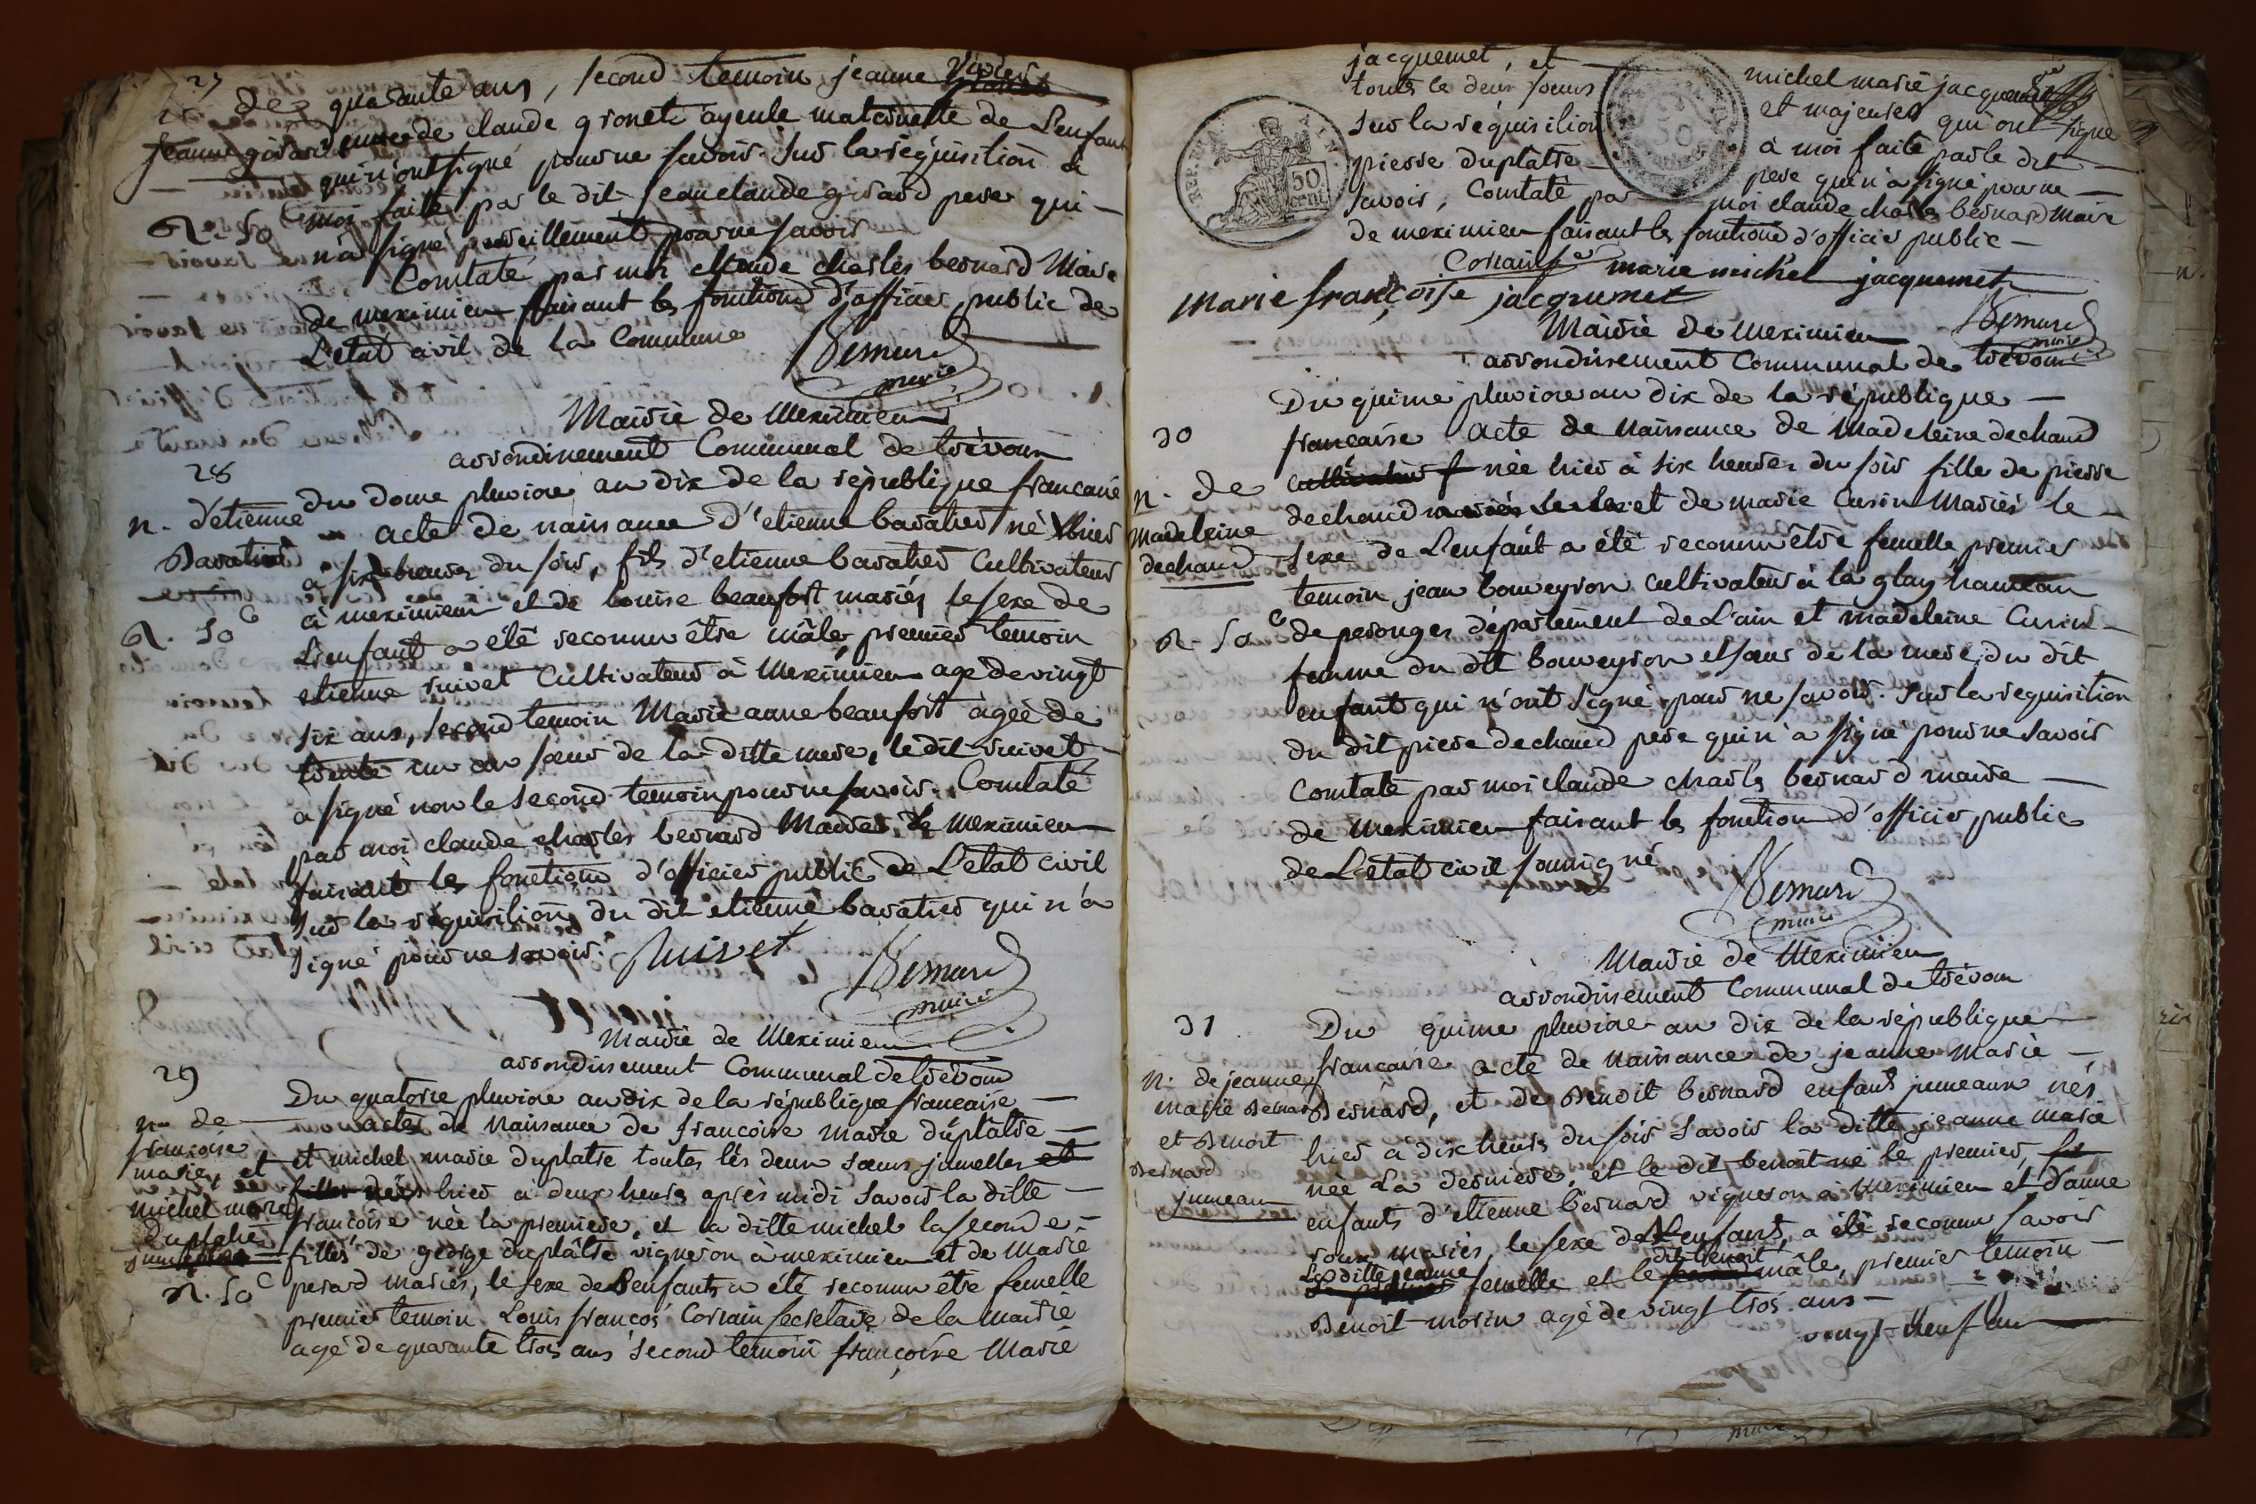 27
de quarante ans, second temoin jeanne
jeanne girard veuve de claude gronet ayeule maternelle de L'enfant
qui n'ont signé pour ne savoir. Sur la réquisition à
R. 50 c moi faite par le dit jean claude girard pere qui —
n'a signé pareillement pour ne savoir
Constaté par moi claude charles bernard Maire
de meximieu faisant les fonctions d'officier public de
L'etat civil de la Commune
Bernard
maire
Mairie de Meximieu
arrondissement Communal de trévoux
28
du douze pluviose an dix de la république francaise
n. d'etienne
Baratier
acte de naissance d'etienne baratier né hier
à six heures du soir, fils d'etienne baratier Cultivateur
à meximieu et de louise beaufort mariés le sexe de
R. 50 c
L'enfant a été reconnu être mâle, premier temoin
etienne ruivet Cultivateur à Meximieu age de vingt
six ans, second temoin Marie anne beaufort agée de
trente un an soeur de la ditte mere, le dit ruivet
a signé non le second temoin pour ne savoir. Constaté
par moi claude charles bernard Maire de Meximieu
faisant les fonctions d'officier public de L'etat civil
sur la réquisition du dit etienne baratier qui n'a
signé pour ne savoir.
Ruivet
Bernard
maire
Mairie de Meximieu
arrondissement Communal de trévoux
29
Du quatorze pluviose an dix de la république francaise —
n. de
francoise
marie, et
michel marie
duplatre
jumelles
actes de Naissance de francoise marie duplâtre —
et michel marie duplatre toutes les deux soeurs jumelles et
filles nées hier à deux heures après midi savoir la ditte —
francoise née la premiere, et la ditte michel la seconde —
filles de george duplâtre vigneron a meximieu et de Marie
R. 50 c
perard mariés, le sexe de L'enfants a été reconnu être femelle
premier temoin Louis francois Corsain secretaire de la Mairie
agé de quarante trois ans second temoin françoise Marie
jacquemet, et
toutes les deux soeurs
sur la réquisition
pierre duplatre
savoir, Constaté par
michel marie jacquemet
et majeures qui ont signé
à moi faite par le dit —
pere qui n'a signé pour ne —
moi claude charles bernard Maire
50
cent
de meximieu faisant les fonctions d'officier public —
Corsain
marie michel jacquemet
Marie françoise jacquemet
Bernard
maire
Mairie de Meximieu
arrondissement Communal de trévoux
Du quinze pluviose an dix de la république —
30
francaise acte de Naissance de Madeleine dechaud
n. de
Madeleine
dechaud
cultivateur née hier à six heures du soir fille de pierre
dechaud et de marie Cusin Mariés le —
sexe de L'enfant a été reconnu être femelle premier
temoin jean bouveyron cultivateur à la glay hameau
R. 50 c
de perouges département de L'ain et madeleine Cusin —
femme du dit bouveyron et soeur de la mere du dit
enfant qui n'ont signé pour ne savoir. Sur la requisition
du dit pierre dechaud pere qui n'a signé pour ne savoir
Constaté par moi claude charles bernard maire —
de Meximieu faisant les fonctions d'officier public
de L'etat civil soussigné
Bernard
maire
Mairie de Meximieu
arrondissement Communal de trévoux
31
Du quinze pluviose an dix de la république
francaise acte de Naissance de jeanne Marie —
n. de jeanne
marie Bernard
et Benoit
Bernard
jumeaux
Bernard, et de Benoit bernard enfans jumeaux nés
hier à dix heures du soir savoir la ditte jeanne marie
née La derniere, et le dit benoit né le premier,
enfants d'etienne bernard vigneron à meximieu et d'anne
roux mariés, le sexe de L'enfants, a été reconnu savoir
La ditte jeanne femelle et le dit benoit mâle, premier temoin
Benoit morin agé de vingt trois ans —
vingt neuf ans